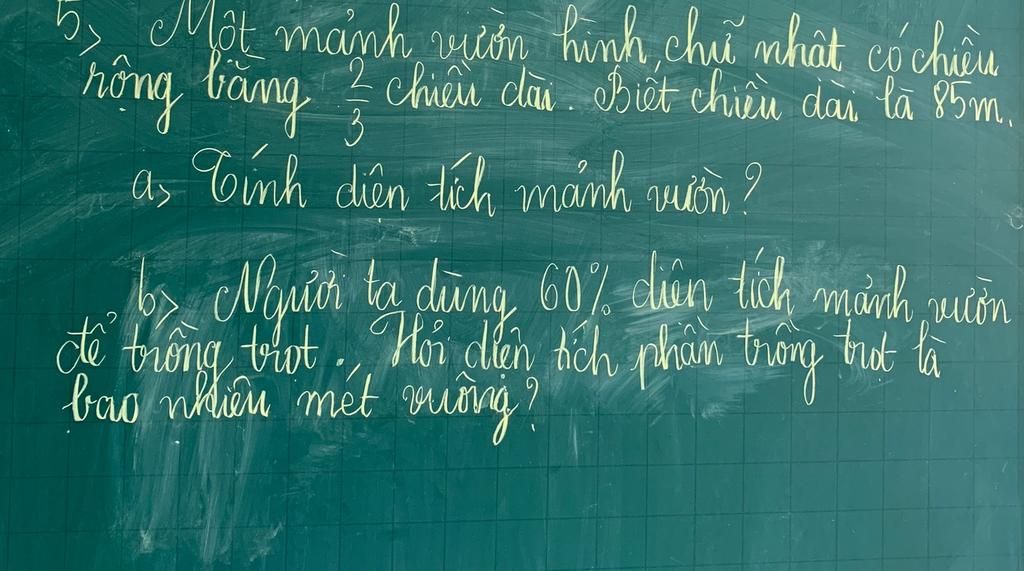 5> Một mảnh vườn hình chữ nhật có chiều
rộng bằng 2/3 chiều dài. Biết chiều dài là 85m.
a> Tính diện tích mảnh vườn?
b> Người ta dùng 60% diện tích mảnh vườn
để trồng trọt. Hỏi diện tích phần trồng trọt là
bao nhiêu mét vuông?